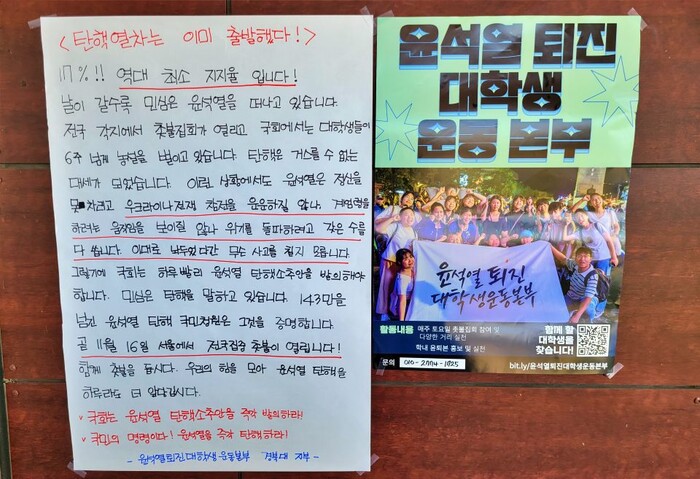 <탄핵열차는 이미 출발했다!>
17%!! 역대 최소 지지율 입니다!
날이 갈수록 민심은 윤석열을 떠나고 있습니다.
전국 각지에서 촛불집회가 열리고 국회에서는 대학생들이
6주 넘게 농성을 벌이고 있습니다. 탄핵은 거스를 수 없는
대세가 되었습니다. 이런 상황에서도 윤석열은 정신을
못 차리고 우크라이나전쟁 참전을 운운하질 않나, 계엄령을
하려는 움직임을 보이질 않나 위기를 돌파하려고 갖은 수를
다 씁니다. 이대로 놔두었다간 무슨 사고를 칠지 모릅니다.
그렇기에 국회는 하루 빨리 윤석열 탄핵소추안을 발의해야
합니다. 민심은 탄핵을 말하고 있습니다. 143만을
넘긴 윤석열 탄핵 국민청원은 그것을 증명합니다.
곧 11월 16일 서울에서 전국집중 촛불이 열립니다!
함께 촛불을 듭시다. 우리의 힘을 모아 윤석열 탄핵을
하루라도 더 앞당깁시다.
v 국회는 윤석열 탄핵소추안을 즉각 발의하라!
v 국민의 명령이다! 윤석열을 즉각 탄핵하라!
- 윤석열퇴진대학생운동본부 경북대 지부 -
윤석열 퇴진
대학생
운동 본부
윤석열 퇴진
대학생운동본부
활동내용 매주 토요일 촛불집회 참여 및
다양한 거리 실천
학내 윤퇴본 홍보 및 실천
문의 010-2774-1825
함께 할
대학생을
찾습니다!
bit.ly/윤석열퇴진대학생운동본부